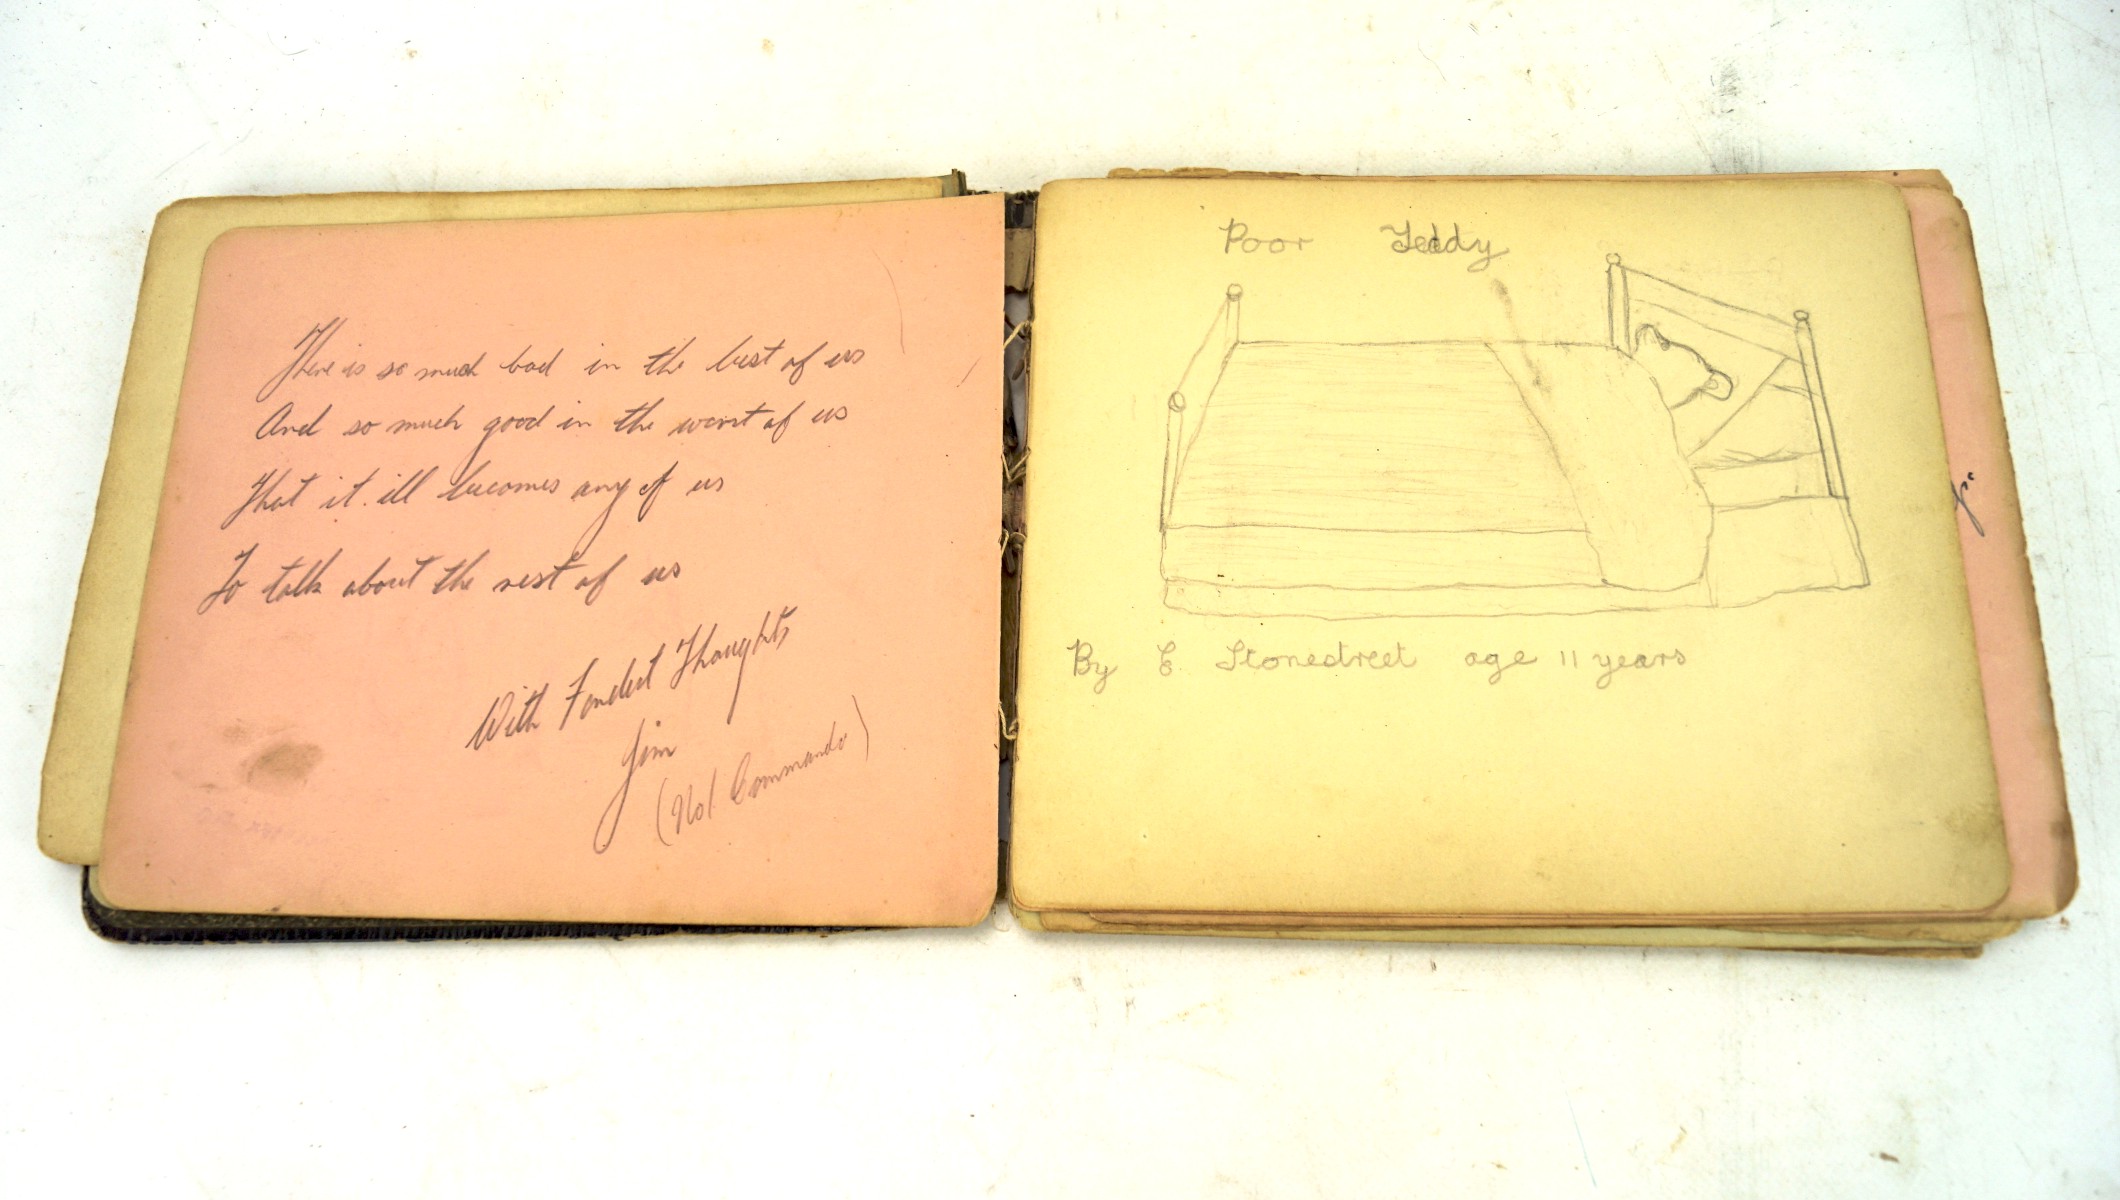 There is so much bad in the best of us
And so much good in the worst of us
That it ill becomes any of us
To talk about the rest of us
With Fondest Thoughts
Jim
(No1 Commando)
Poor Teddy
By E Stonestreet age 11 years